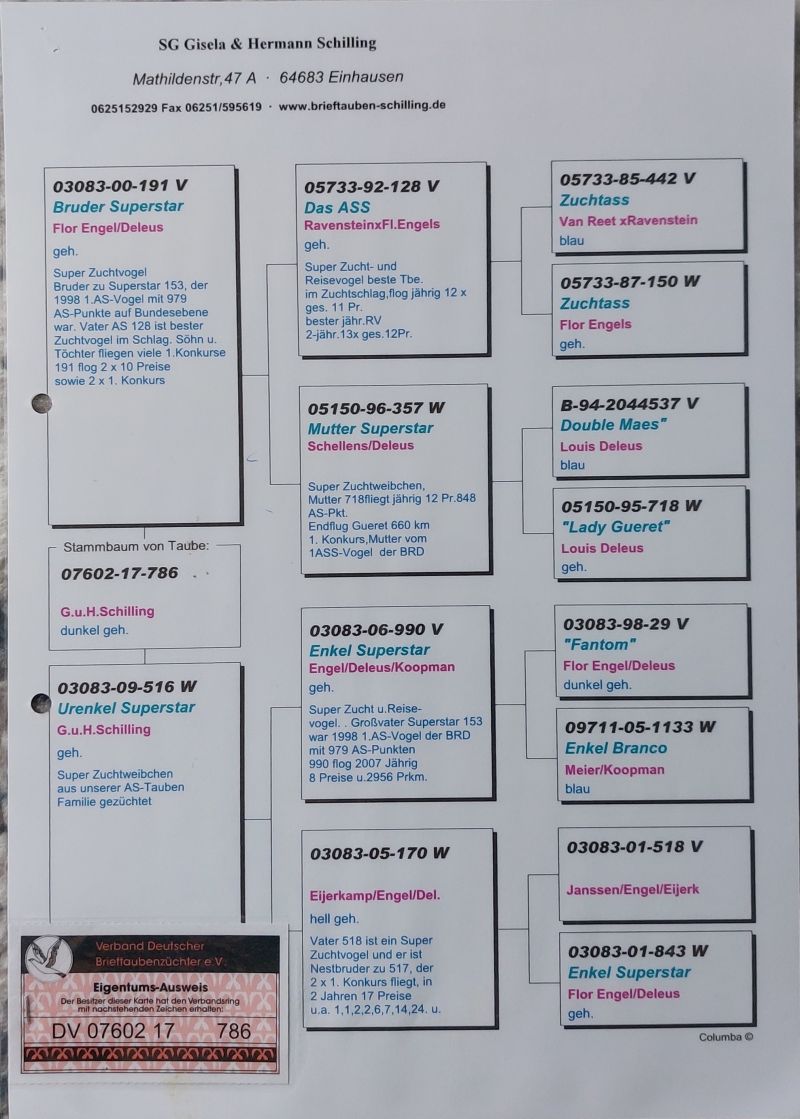 SG Gisela & Hermann Schilling
Mathildenstr,47 A · 64683 Einhausen
0625152929 Fax 06251/595619 · www.brieftauben-schilling.de
03083-00-191 V
Bruder Superstar
Flor Engel/Deleus
geh.
Super Zuchtvogel
Bruder zu Superstar 153, der
1998 1.AS-Vogel mit 979
AS-Punkte auf Bundesebene
war. Vater AS 128 ist bester
Zuchtvogel im Schlag. Söhn u.
Töchter fliegen viele 1.Konkurse
191 flog 2 x 10 Preise
sowie 2 x 1. Konkurs
Stammbaum von Taube:
07602-17-786
G.u.H.Schilling
dunkel geh.
03083-09-516 W
Urenkel Superstar
G.u.H.Schilling
geh.
Super Zuchtweibchen
aus unserer AS-Tauben
Familie gezüchtet
05733-92-128 V
Das ASS
RavensteinxFl.Engels
geh.
Super Zucht- und
Reisevogel beste Tbe.
im Zuchtschlag,flog jährig 12 x
ges. 11 Pr.
bester jähr.RV
2-jähr.13x ges.12Pr.
05150-96-357 W
Mutter Superstar
Schellens/Deleus
Super Zuchtweibchen,
Mutter 718fliegt jährig 12 Pr.848
AS-Pkt.
Endflug Gueret 660 km
1. Konkurs,Mutter vom
1ASS-Vogel der BRD
03083-06-990 V
Enkel Superstar
Engel/Deleus/Koopman
geh.
Super Zucht u.Reise-
vogel. . Großvater Superstar 153
war 1998 1.AS-Vogel der BRD
mit 979 AS-Punkten
990 flog 2007 Jährig
8 Preise u.2956 Prkm.
03083-05-170 W
Eijerkamp/Engel/Del.
hell geh.
Vater 518 ist ein Super
Zuchtvogel und er ist
Nestbruder zu 517, der
2 x 1. Konkurs fliegt, in
2 Jahren 17 Preise
u.a. 1,1,2,2,6,7,14,24. u.
05733-85-442 V
Zuchtass
Van Reet xRavenstein
blau
05733-87-150 W
Zuchtass
Flor Engels
geh.
B-94-2044537 V
Double Maes"
Louis Deleus
blau
05150-95-718 W
"Lady Gueret"
Louis Deleus
geh.
03083-98-29 V
"Fantom"
Flor Engel/Deleus
dunkel geh.
09711-05-1133 W
Enkel Branco
Meier/Koopman
blau
03083-01-518 V
Janssen/Engel/Eijerk
03083-01-843 W
Enkel Superstar
Flor Engel/Deleus
geh.
Columba ©
Verband Deutscher
Brieftaubenzüchter e.V.
Eigentums-Ausweis
Der Besitzer dieser Karte hat den Verbandsring
mit nachstehenden Zeichen erhalten:
DV 07602 17 786